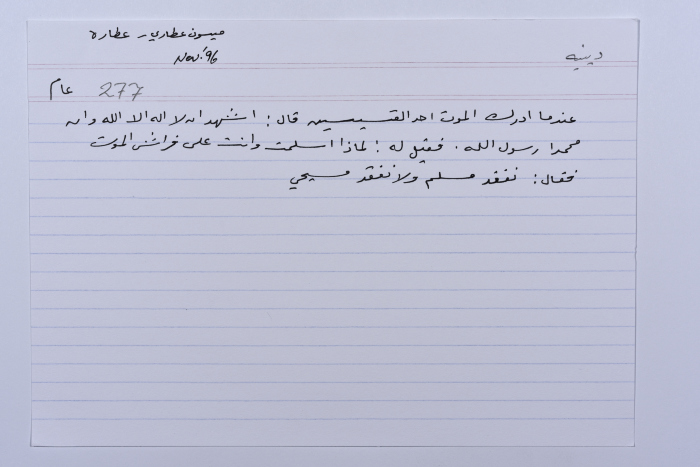 ميسون عطاري - عطاره
Nov. '96
دينيه
عام 277
عندما ادرك الموت احد القسيسين قال: اشهد ان لا اله الا الله وان
محمدا رسول الله. فقيل له: لماذا اسلمت وانت على فراش الموت
فقال: نفقد مسلم ولا نفقد مسيحي